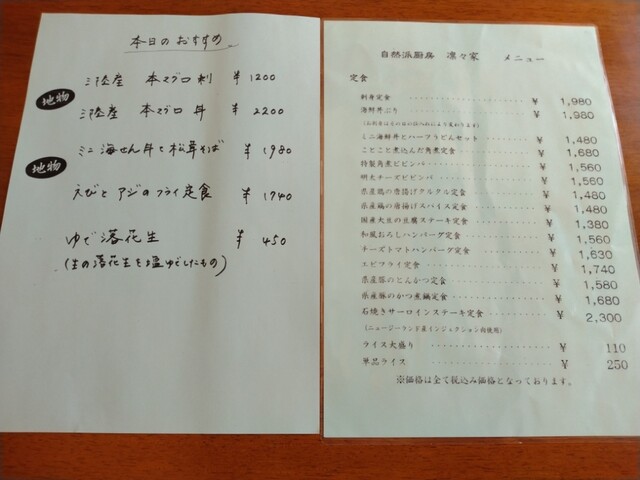 本日のおすすめ
三陸産 本マグロ刺 ¥1200
地物
三陸産 本マグロ丼 ¥2200
ミニ海せん丼と松茸そば ¥1980
地物
えびとアジのフライ定食 ¥1740
ゆで落花生 ¥450
(生の落花生を塩ゆでしたもの)
自然派厨房 凛々家 メニュー
定食
刺身定食 ¥ 1,980
海鮮丼ぶり ¥ 1,980
ミニ海鮮丼とハーフうどんセット ¥ 1,480
ことこと煮込んだ角煮定食 ¥ 1,680
特製角煮ビビンバ ¥ 1,560
明太チーズビビンバ ¥ 1,560
県産鶏の唐揚げクルクル定食 ¥ 1,480
県産鶏の唐揚げスパイス定食 ¥ 1,480
国産大豆の豆腐ステーキ定食 ¥ 1,380
和風おろしハンバーグ定食 ¥ 1,560
チーズトマトハンバーグ定食 ¥ 1,630
エビフライ定食 ¥ 1,740
県産豚のとんかつ定食 ¥ 1,580
県産豚のかつ煮鍋定食 ¥ 1,680
石焼きサーロインステーキ定食 ¥ 2,300
(ニュージーランド産インジェクション肉使用)
ライス大盛り ¥ 110
単品ライス ¥ 250
※価格は全て税込み価格となっております。